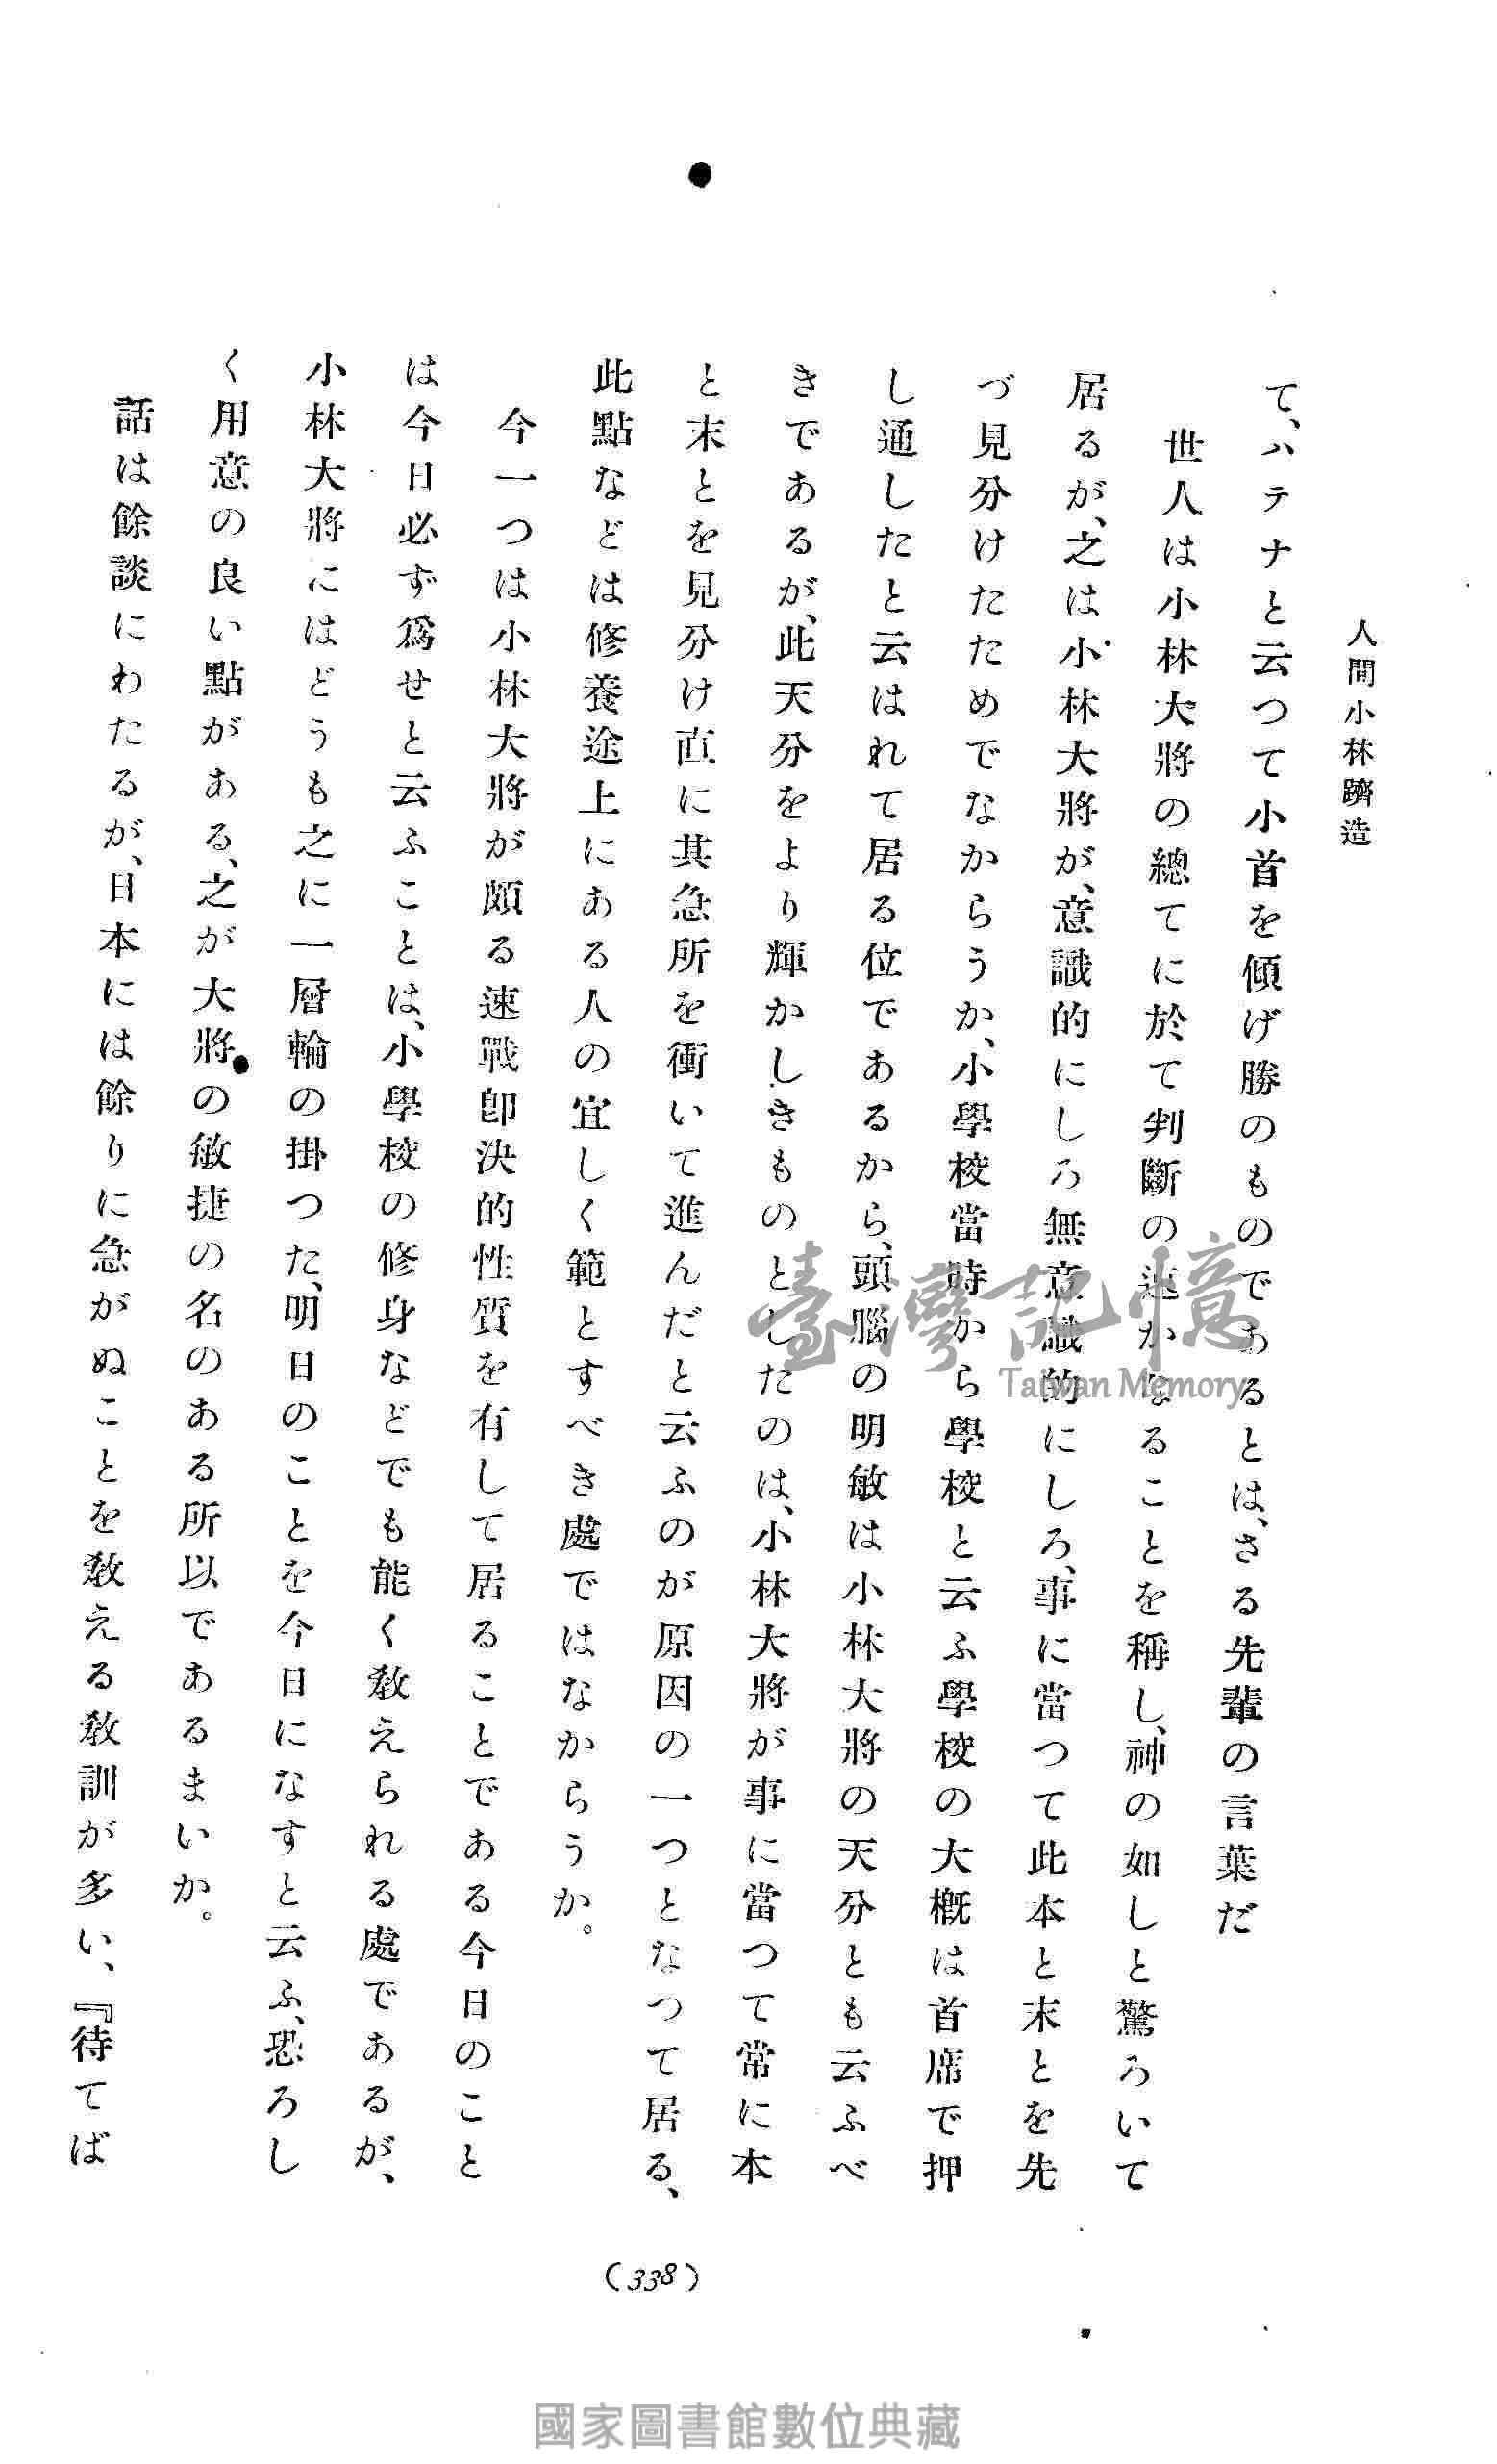 人間小林躋造
て、ハテナと云つて小首を傾げ勝のものであるとは、さる先輩の言葉だ
世人は小林大將の總てに於て判斷の速かなることを稱し、神の如しと驚ろいて
居るが、之は小林大將が、意識的にしろ無意識的にしろ、事に當つて此本と末とを先
づ見分けたためでなからうか、小學校當時から學校と云ふ學校の大概は首席で押
し通したと云はれて居る位であるから、頭腦の明敏は小林大將の天分とも云ふべ
きであるが、此天分をより輝かしきものとしたのは、小林大將が事に當つて常に本
と末とを見分け直に其急所を衝いて進んだと云ふのが原因の一つとなつて居る、
此點などは修養途上にある人の宜しく範とすべき處ではなからうか。
今一つは小林大將が頗る速戰卽決的性質を有して居ることである今日のこと
は今日必ず爲せと云ふことは、小學校の修身などでも能く敎えられる處であるが、
小林大將にはどうも之に一層輪の掛つた、明日のことを今日になすと云ふ、恐ろし
く用意の良い點がある、之が大將の敏捷の名のある所以であるまいか。
話は餘談にわたるが、日本には餘りに急がぬことを敎える敎訓が多い、『待てば
(338)
臺灣記憶
Taiwan Memory
國家圖書館數位典藏